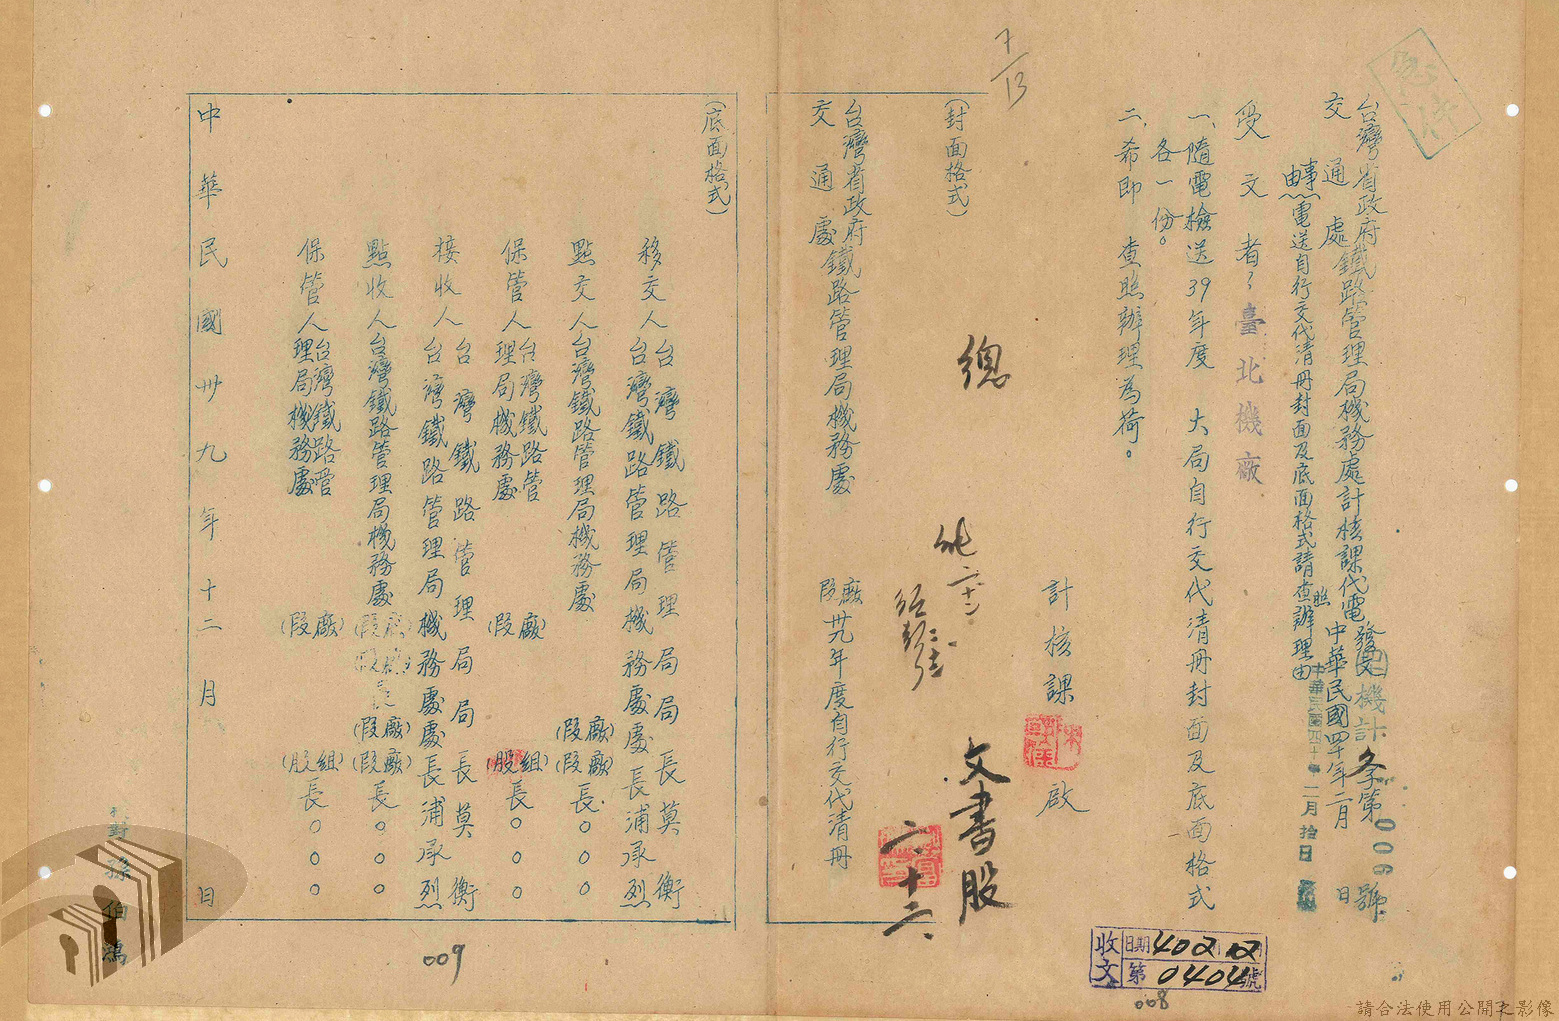 7/13
台灣省政府
交通處鐵路管理局機務處計核課代電
發文機計冬字第006號
中華民國四十年二月 日
中華民國四十年二月拾日
事由:電送自行交代清冊封面及底面格式請查照辦理由
受文者:臺北機廠
一、隨電檢送39年度 大局自行交代清冊封面及底面格式
各一份。
二、希即 查照辦理為荷。
計核課 啟
總
文書股
二、十二、
(封面格式)
台灣省政府
交通處鐵路管理局機務處 廠段 卅九年度自行交代清冊
(底面格式)
移交人 台灣鐵路管理局局長莫衡
台灣鐵路管理局機務處處長浦承烈
點交人台灣鐵路管理局機務處 (廠段)(廠段)長○○○
保管人台灣鐵路管理局機務處 (廠段) (組股)長○○○
接收人 台灣鐵路管理局局長莫衡
台灣鐵路管理局機務處處長浦承烈
點收人台灣鐵路管理局機務處 (廠段)(廠段)長○○○
保管人台灣鐵路管理局機務處 (廠段) (組股)長○○○
中華民國卅九年十二月 日
對孫伯鴻
收文
日期 40 2 12
第0404號
008
009
請合法使用公開之影像